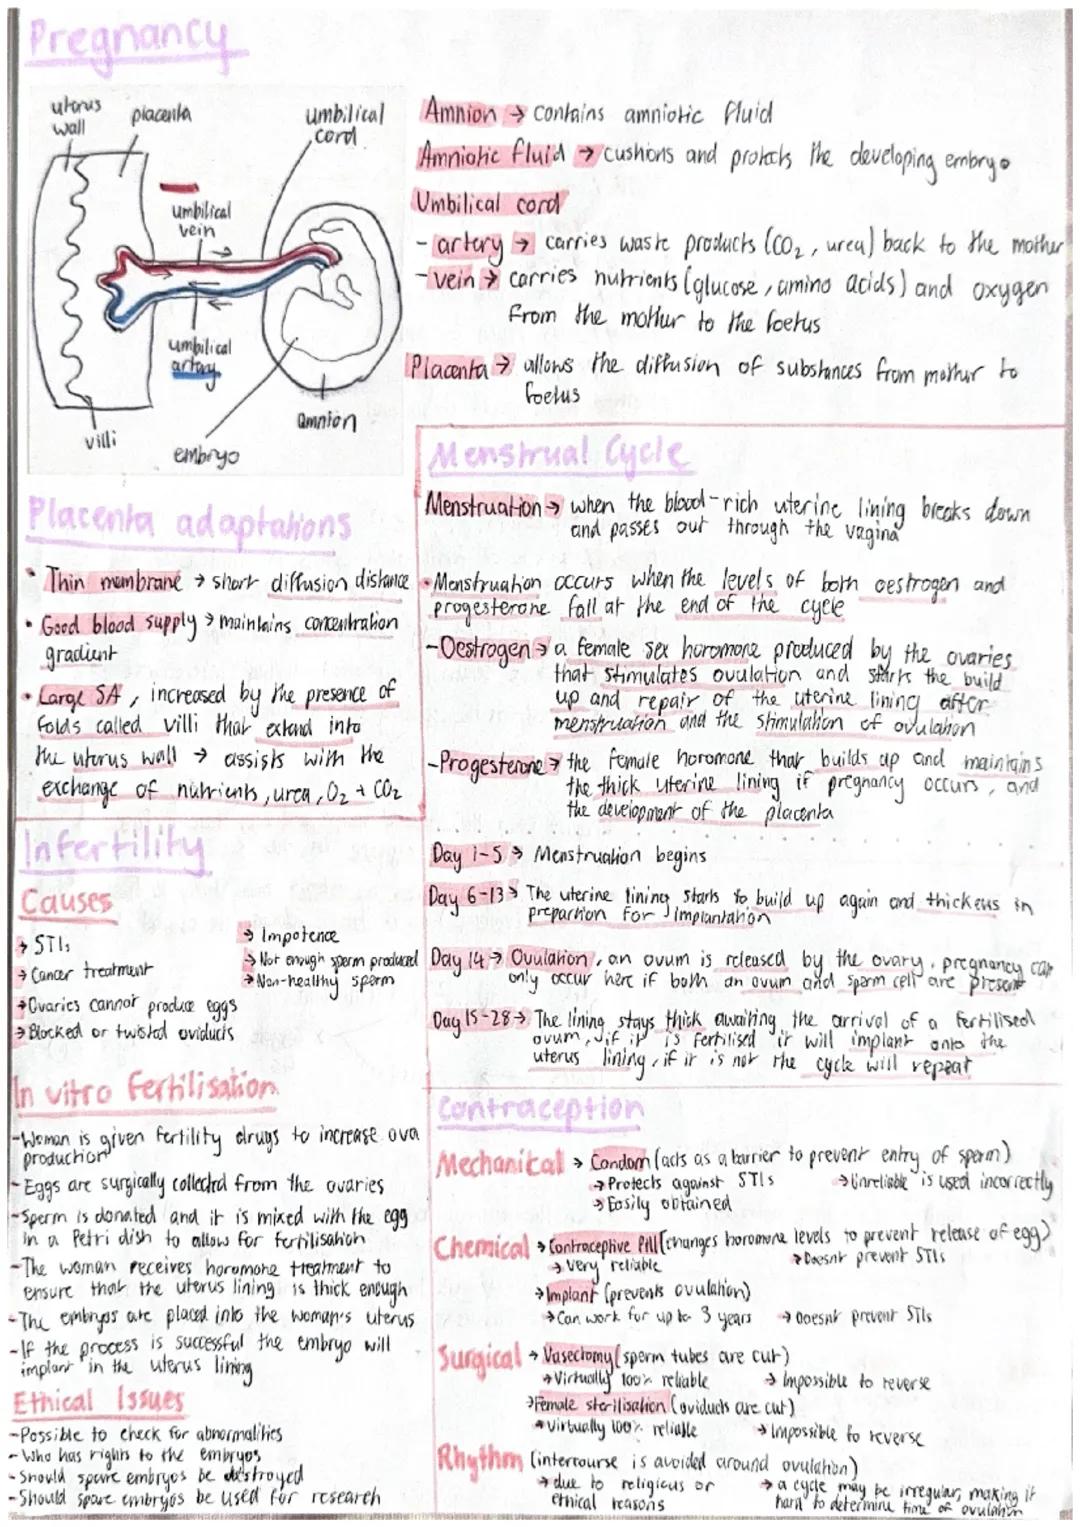 Pregnancy
uterus wall
placenta
umbilical cord
umbilical vein
umbilical artery
villi
embryo
amnion
Amnion → contains amniotic fluid
Amniotic fluid → cushions and protects the developing embryo
Umbilical cord
- artery → carries waste products (CO₂, urea) back to the mother
- vein → carries nutrients (glucose, amino acids) and oxygen
from the mother to the foetus
Placenta → allows the diffusion of substances from mother to
foetus
Placenta adaptations
• Thin membrane → short diffusion distance
• Good blood supply → maintains concentration
gradient
• Large SA, increased by the presence of
folds called villi that extend into
the uterus wall → assists with the
exchange of nutrients, urea, O₂ + CO₂
Menstrual Cycle
Menstruation → when the blood-rich uterine lining breaks down
and passes out through the vagina
• Menstruation occurs when the levels of both oestrogen and
progesterone fall at the end of the cycle
- Oestrogen → a female sex horomone produced by the ovaries
that stimulates ovulation and starts the build
up and repair of the uterine lining after
menstruation and the stimulation of ovulation
- Progesterone → the female horomone that builds up and maintains
the thick uterine lining if pregnancy occurs, and
the development of the placenta
Day 1-5 → Menstruation begins
Day 6-13 → The uterine lining starts to build up again and thickens in
prepartion for implantation
Day 14 → Ovulation, an ovum is released by the ovary, pregnancy can
only occur here if both an ovum and sperm cell are present
Day 15-28 → The lining stays thick awaiting the arrival of a fertilised
ovum, if it is fertilised it will implant onto the
uterus lining, if it is not the cycle will repeat
Infertility
Causes
→ STIs
→ Cancer treatment
→ Ovaries cannot produce eggs
→ Blocked or twisted oviducts
→ Impotence
→ Not enough sperm produced
→ Non-healthy sperm
In vitro fertilisation
- Woman is given fertility drugs to increase ova
production
- Eggs are surgically collected from the ovaries
- Sperm is donated and it is mixed with the egg
in a Petri dish to allow for fertilisation
- The woman receives horomone treatment to
ensure that the uterus lining is thick enough
- The embryos are placed into the woman's uterus
- If the process is successful the embryo will
implant in the uterus lining
Ethical Issues
- Possible to check for abnormalities
- Who has rights to the embryos
- Should spare embryos be destroyed
- Should spare embryos be used for research
Contraception
Mechanical → Condom (acts as a barrier to prevent entry of sperm)
→ Protects against STIs → Unreliable is used incorrectly
→ Easily obtained
Chemical → Contraceptive Pill (changes horomone levels to prevent release of egg)
→ very reliable → Doesnt prevent STIs
→ Implant (prevents ovulation)
→ Can work for up to 3 years → doesnt prevent STIs
Surgical → Vasectomy (sperm tubes are cut)
→ Virtually 100% reliable → Impossible to reverse
→ Female sterilisation (oviducts are cut)
→ virtually 100% reliable → Impossible to reverse
Rhythm (intercourse is avoided around ovulation)
→ due to religious or
ethical reasons
→ a cycle may be irregular, making it
hard to determine time of ovulation